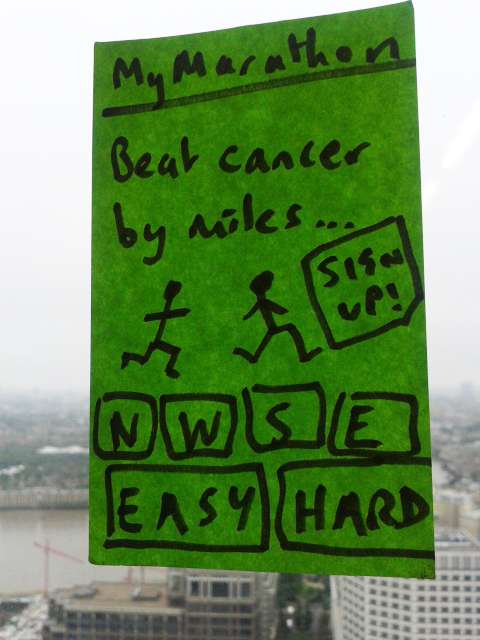 My Marathon
Beat cancer
by miles...
SIGN
UP!
N W S E
EASY HARD